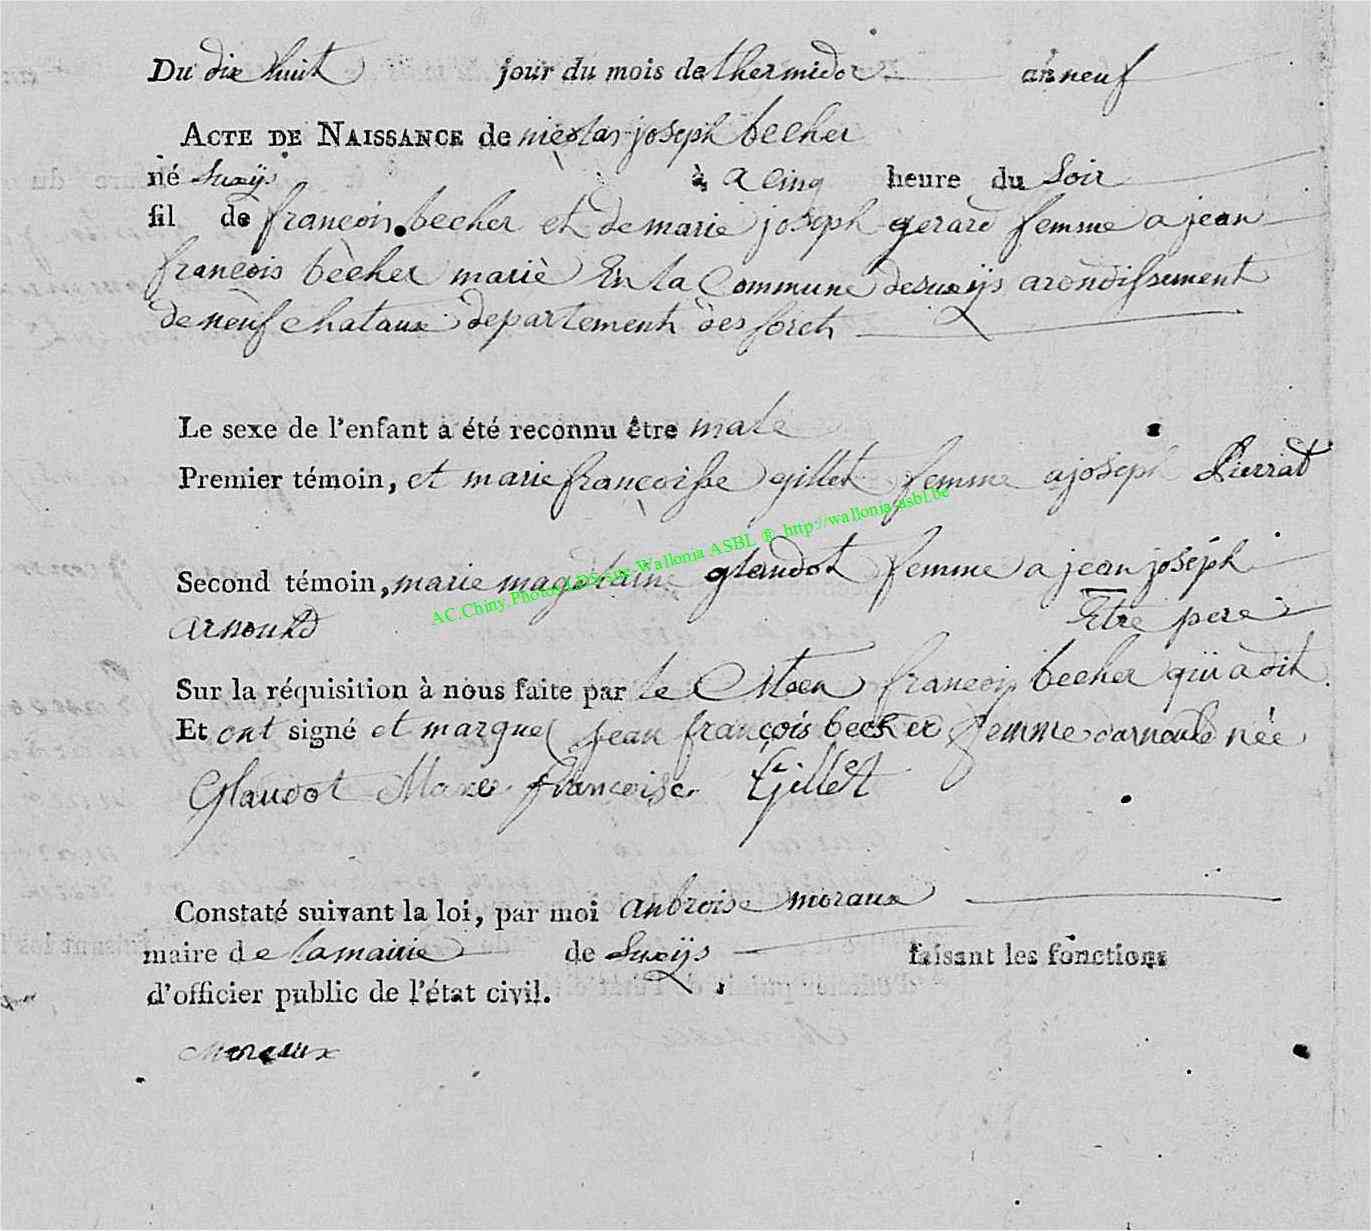 Du dix huit jour du mois de thermidor an neuf
ACTE DE NAISSANCE de nicolas joseph becher
né Suxÿs à a cinq heure du Soir
fil de francois becher et de marie joseph gerard femme a jean
francois bècher mariè En la Commune desuxÿs arondissement
de nèuf chataux departement des foret
Le sexe de l'enfant a été reconnu être male
Premier témoin, et marie francoisse gillet femme a joseph Pierrad
AC.Chiny.Photos.LDS-Site.Wallonia ASBL ® http://wallonia-asbl.be
Second témoin, marie magdelaine glaudot femme a jean joséph
arnould Etre pere
Sur la réquisition à nous faite par le Citoen francois becher qui a dit
Et ont signé et marquez jean françois becher femme darnould née
Glaudot Marie francoise Gillet
Constaté suivant la loi, par moi anbroise moraux
maire de lamairie de Suxÿs faisant les fonctions
d'officier public de l'état civil.
Moraux